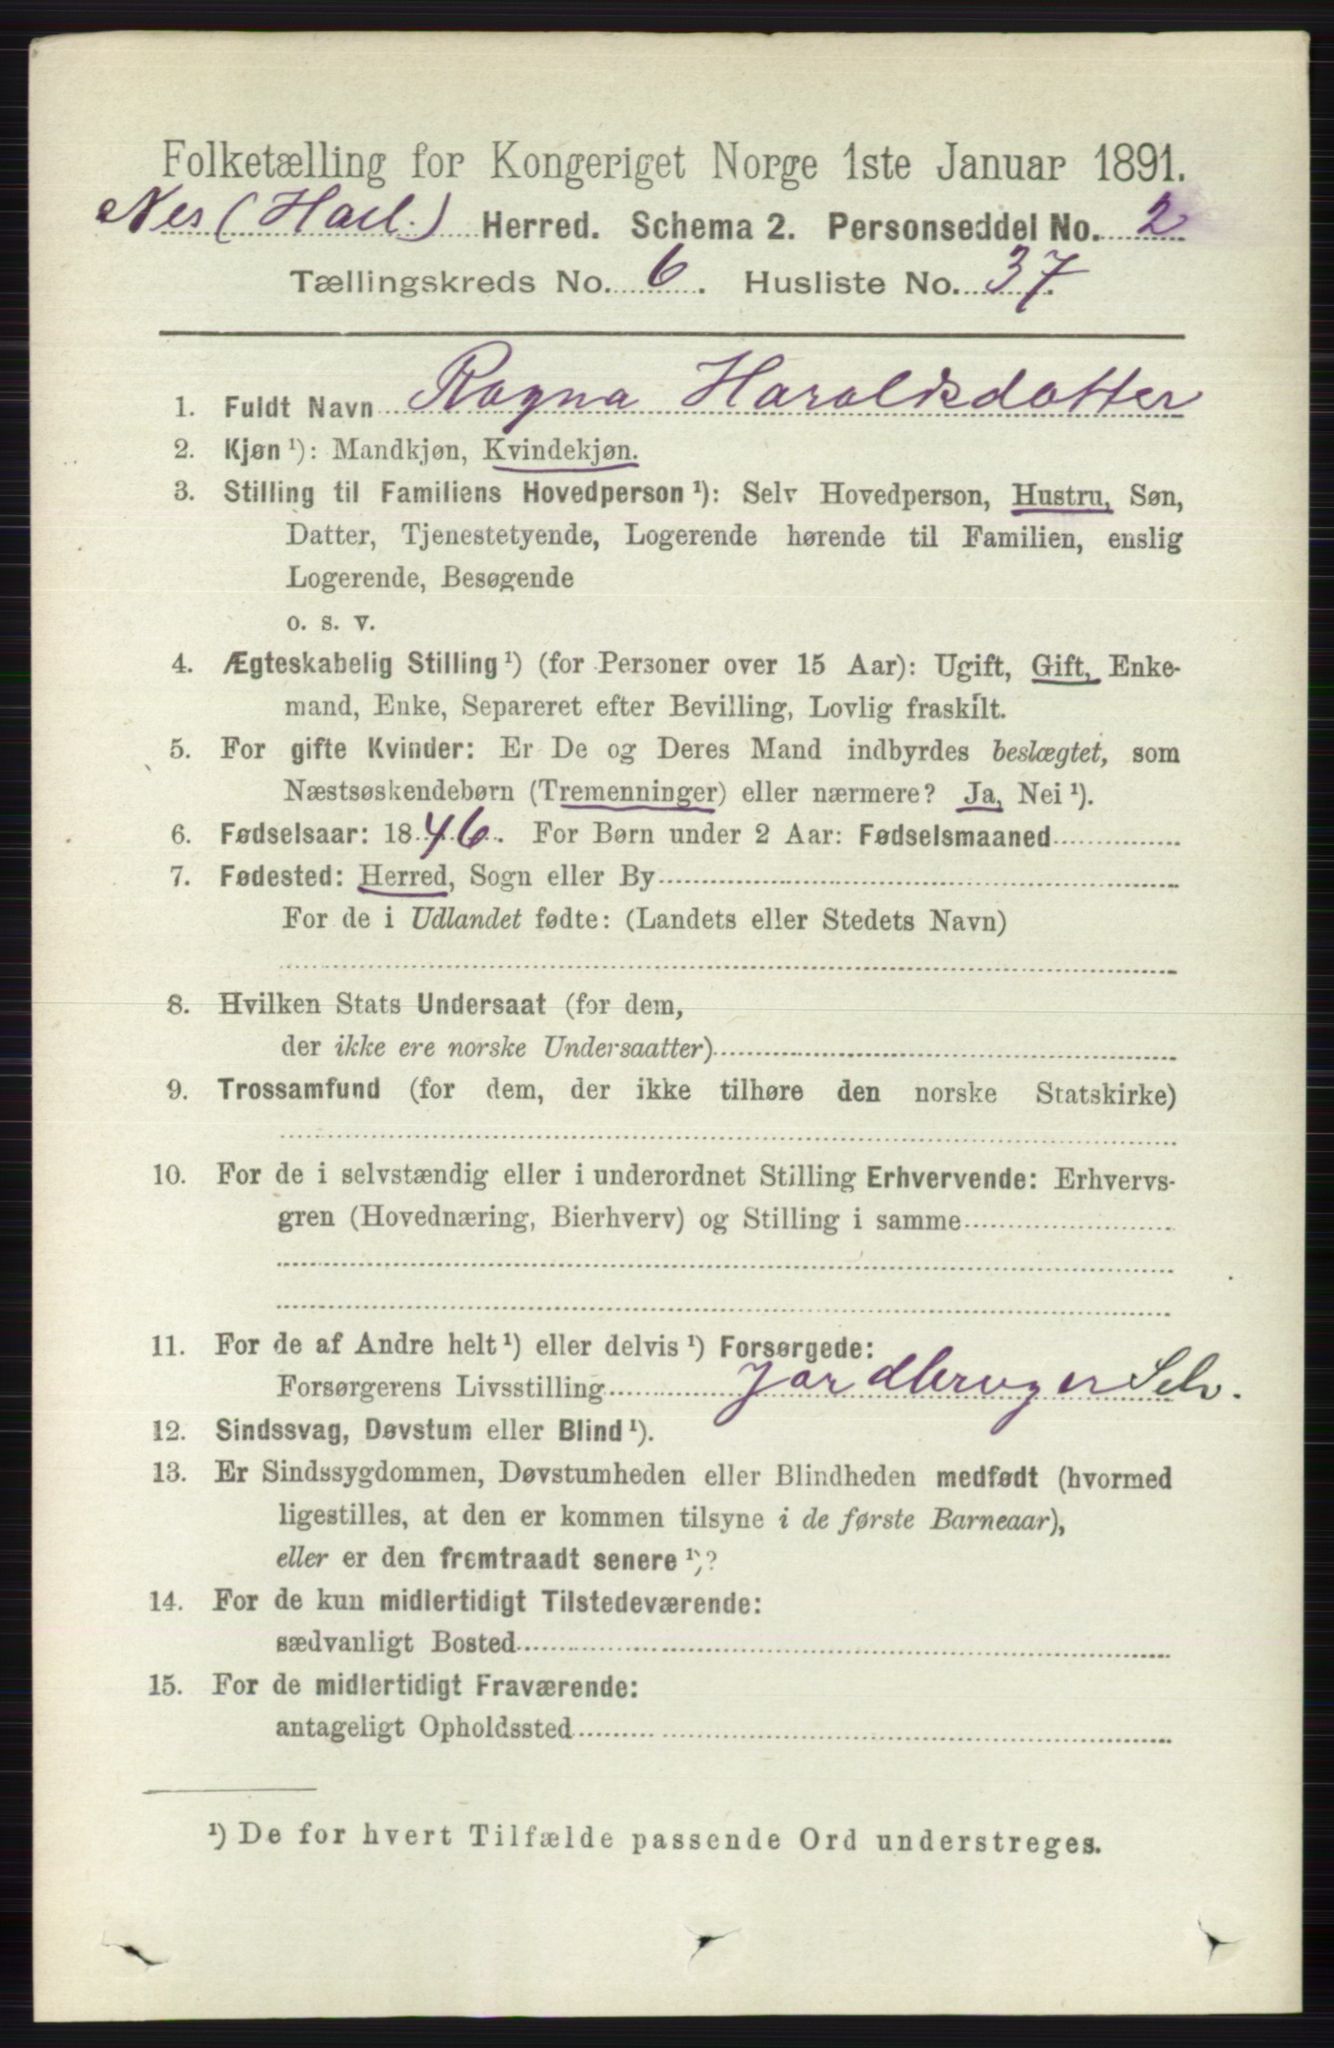 Folketælling for Kongeriget Norge 1ste Januar 1891.
Nes (Hall.) Herred. Schema 2. Personseddel No. 2
Tællingskreds No. 6. Husliste No. 37.
1. Fuldt Navn Ragna Haraldsdatter
2. Kjøn ¹): Mandkjøn, Kvindekjøn.
3. Stilling til Familiens Hovedperson ¹): Selv Hovedperson, Hustru, Søn,
Datter, Tjenestetyende, Logerende hørende til Familien, enslig
Logerende, Besøgende
o. s. v.
4. Ægteskabelig Stilling ¹) (for Personer over 15 Aar): Ugift, Gift, Enke-
mand, Enke, Separeret efter Bevilling, Lovlig fraskilt.
5. For gifte Kvinder: Er De og Deres Mand indbyrdes beslægtet, som
Næstsøskendebørn (Tremenninger) eller nærmere? Ja, Nei ¹).
6. Fødselsaar: 1846. For Børn under 2 Aar: Fødselsmaaned
7. Fødested: Herred, Sogn eller By
For de i Udlandet fødte: (Landets eller Stedets Navn)
8. Hvilken Stats Undersaat (for dem,
der ikke ere norske Undersaatter)
9. Trossamfund (for dem, der ikke tilhøre den norske Statskirke)
10. For de i selvstændig eller i underordnet Stilling Erhvervende: Erhvervs-
gren (Hovednæring, Bierhverv) og Stilling i samme
11. For de af Andre helt ¹) eller delvis ¹) Forsørgede:
Forsørgerens Livsstilling Jordbruger Selv.
12. Sindssvag, Døvstum eller Blind ¹).
13. Er Sindssygdommen, Døvstumheden eller Blindheden medfødt (hvormed
ligestilles, at den er kommen tilsyne i de første Barneaar),
eller er den fremtraadt senere ¹)?
14. For de kun midlertidigt Tilstedeværende:
sædvanligt Bosted
15. For de midlertidigt Fraværende:
antageligt Opholdssted
¹) De for hvert Tilfælde passende Ord understreges.